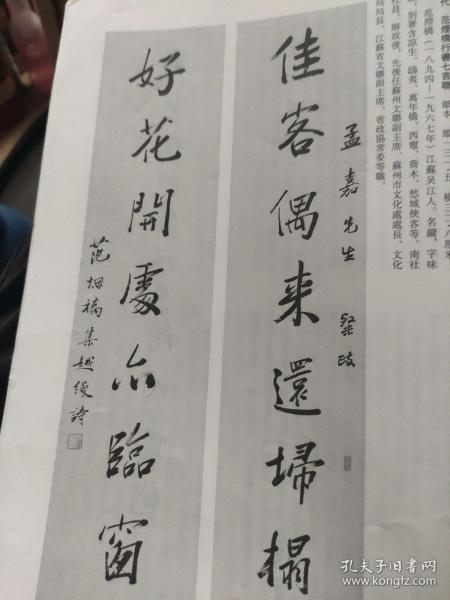 代 范煙橋行書七言聯 紙本
范煙橋（一八九四—一九六七年）江蘇吴江人。名鏞，字味
别署含凉生、鷗夷、萬年橋、西竈、喬木、愁城俠客等。南社
社員。解放後，先後任蘇州文聯副主席、蘇州市文化處處長、文化
局局長、江蘇省文聯副主席、省政協常委等職。
佳客偶来還埽榻
孟嘉先生 粲政
好花開處六臨窗
范烟橋集越缦詩
孔夫子旧书网
www.kongfz.com